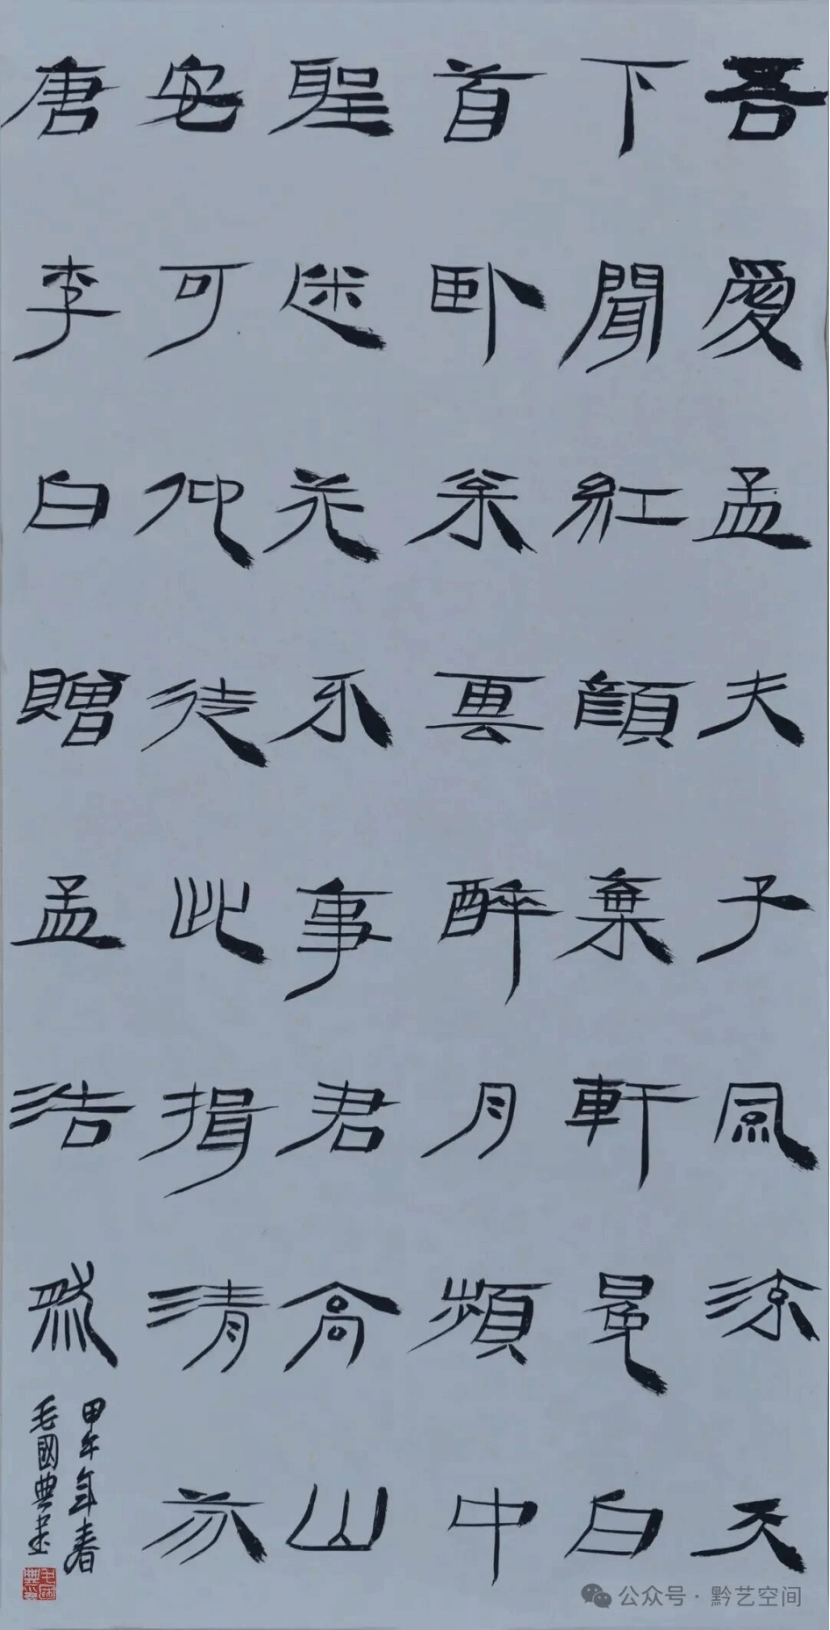 吾愛孟夫子風流天
下聞紅顏棄軒冕白
首臥松雲醉月頻中
聖迷花不事君高山
安可仰徒此揖清芬
唐李白贈孟浩然
甲午年春
毛國典書
公众号 · 黔艺空间